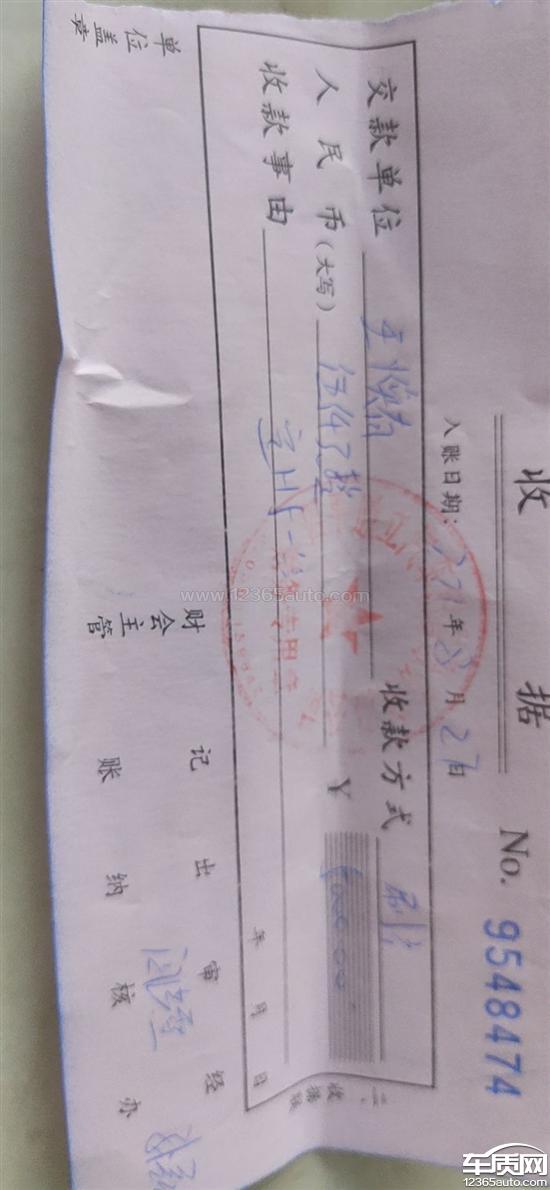 收 据
No. 9548474
入账日期： 年 8 月 27日
交款单位 收款方式 刷卡
人民币（大写） 伍仟元整 ￥ 5000.00
收款事由 定
年 月 日
二、收据联
单位盖章 财会主管 记账 出纳 审核 经办
www.12365auto.com
车质网
12365auto.com